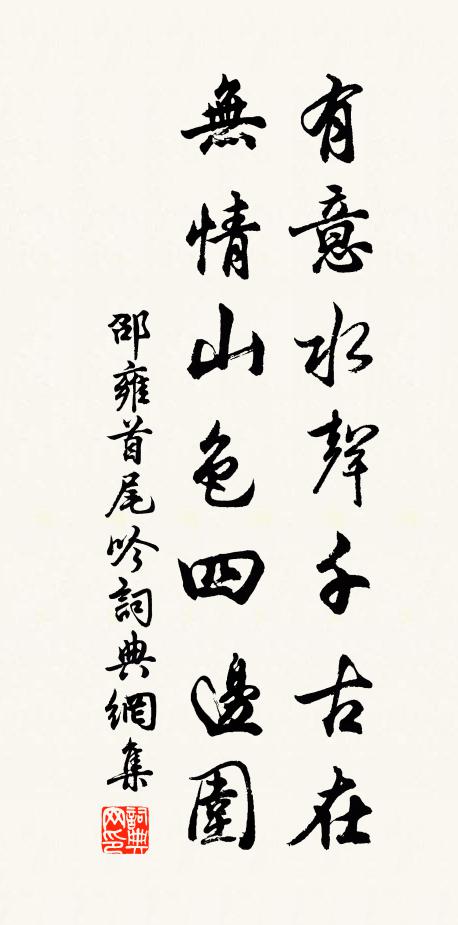 有意水聲千古在
無情山色四邊圍
邵雍首尾吟詞典網集
詞典网印